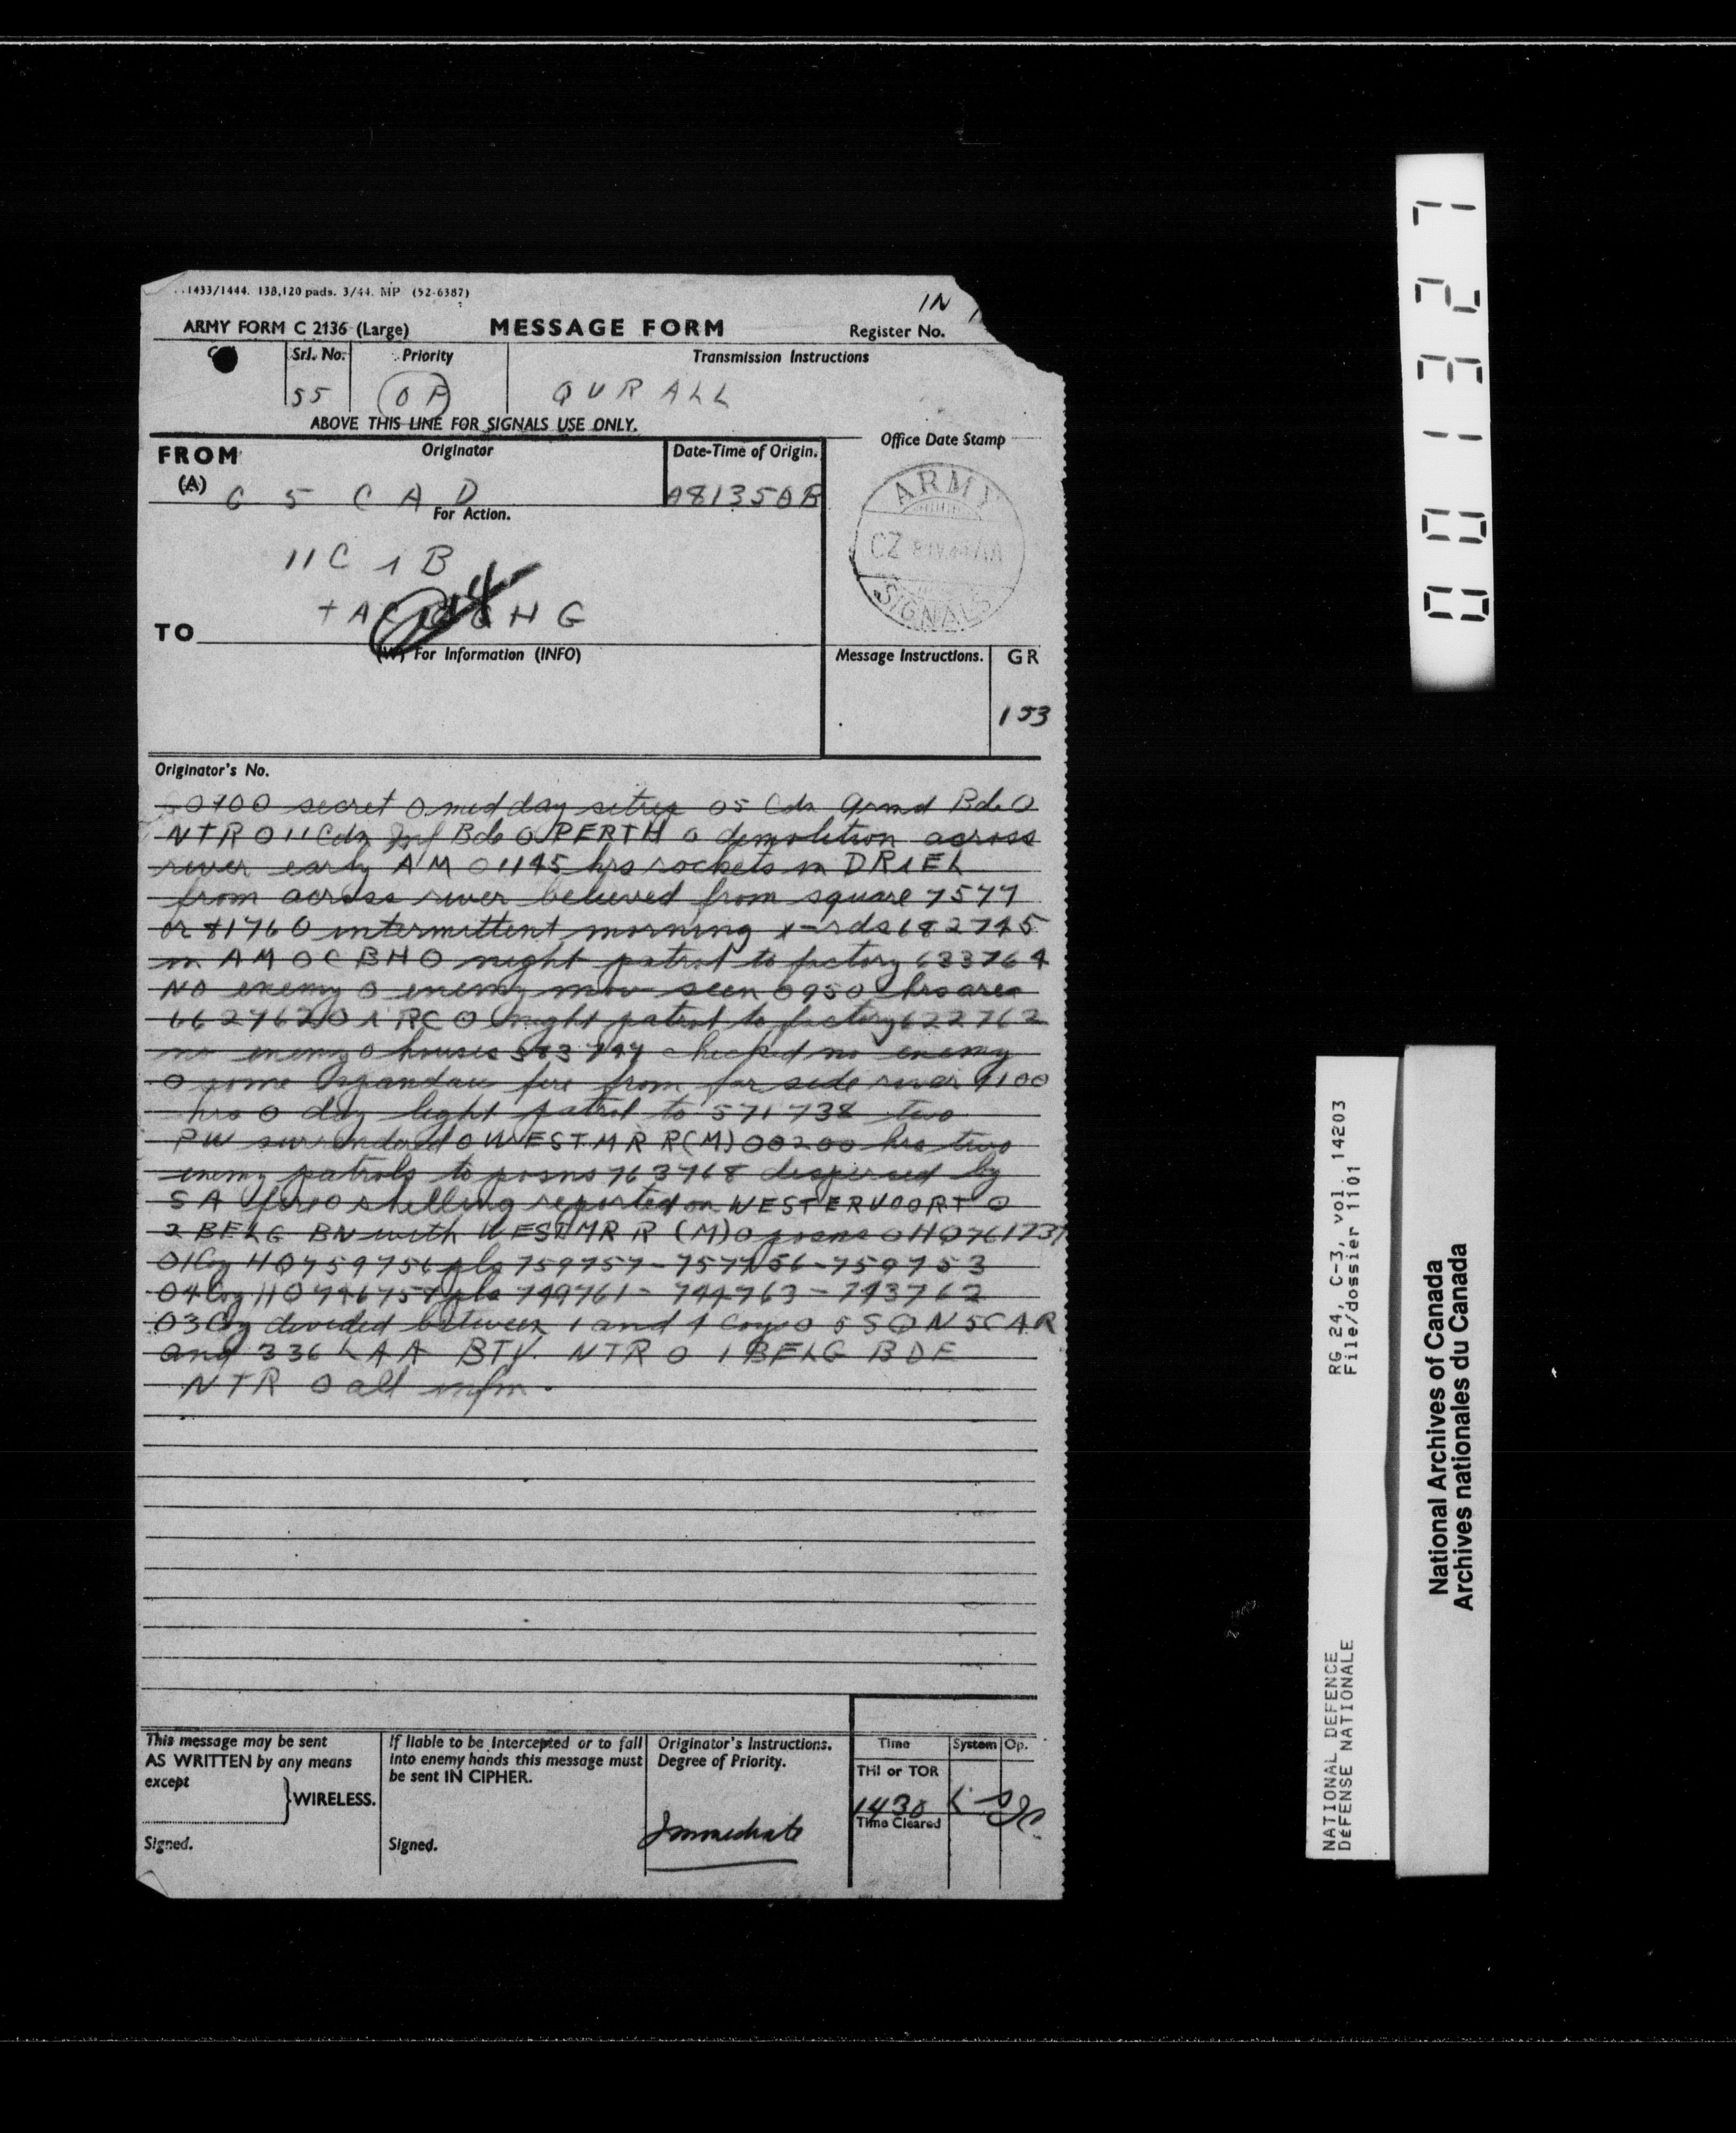 ..1433/1444. 138,120 pads. 3/44. MP (52-6387)
IN
ARMY FORM C 2136 (Large) MESSAGE FORM Register No.
Srl. No. Priority Transmission Instructions
55 OP QVR ALL
ABOVE THIS LINE FOR SIGNALS USE ONLY.
FROM Originator Date-Time of Origin. Office Date Stamp
(A) G 5 C A D 081350B
For Action.
ARMY
CZ
SIGNALS
11 C 1 B
TO
(W) For Information (INFO) Message Instructions. GR
153
Originator's No.
secret O midday sitrep O 5 Cdn Armd Bde O
NTR O 11 Cdn Inf Bde O PERTH O demolition across
river early AM O 1145 hrs rockets in DRIEL
from across river believed from square 7577
or 8176 O intermittent morning x-rds 682745
in AM O CBH O night patrol to factory 633764
NO enemy O enemy mov seen 0950 hrs area
662762 O I RC O night patrol to factory 622762
no enemy O houses 583747 checked no enemy
O some Spandau fire from far side river 1100
hrs O day light patrol to 571738 two
PW surrendered O WESTMR R(M) O 0200 hrs two
enemy patrols to posns 763768 dispersed by
S A fire O shelling reported on WESTERVOORT O
2 BELG BN with WESTMR R (M) O posns O HQ 761737
O 1 Coy HQ 759756 pls 759757-757756-759753
O 4 Coy HQ 746757 pls 749761-744763-743762
O 3 Coy divided between 1 and 4 Coys O 5 SQN 5CAR
and 336 LAA BTY. NTR O 1 BELG BDE
NTR O all infm.
This message may be sent
AS WRITTEN by any means
except
WIRELESS.
Signed.
If liable to be intercepted or to fall
into enemy hands this message must
be sent IN CIPHER.
Signed.
Originator's Instructions.
Degree of Priority.
Immediate
Time System Op.
THI or TOR
1430
Time Cleared
001327
RG 24, C-3, vol. 14203
File/dossier 1101
NATIONAL DEFENCE
DÉFENSE NATIONALE
National Archives of Canada
Archives nationales du Canada